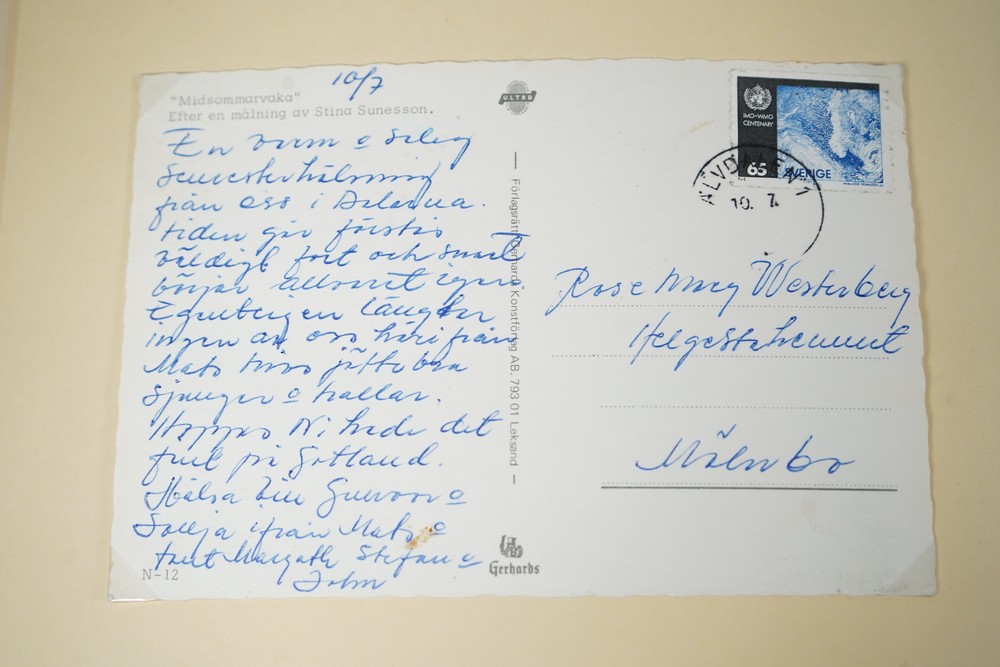 10/7
"Midsommarvaka"
Efter en målning av Stina Sunesson.
En varm o solig
Semesterhälsning
från oss i Dalarna.
tiden går förstås
väldigt fort och snart
börjar allvaret igen.
Egentligen längtar
ingen av oss härifrån
Mats trivs jättebra
sjunger o trallar.
Hoppas Ni hade det
fint på Gotland.
Hälsa till Gunvor o
från Mats o
tant Margareth Stefan o
John
N-12
ULTRA
Förlagsrätt: Gerhards Konstförlag AB. 793 01 Leksand
Gerhards
IMO-WMO
CENTENARY
65
SVERIGE
ÄLVDALEN 1
10. 7.
Rose Mary Westerberg
Helgestahemmet
Mölnbo